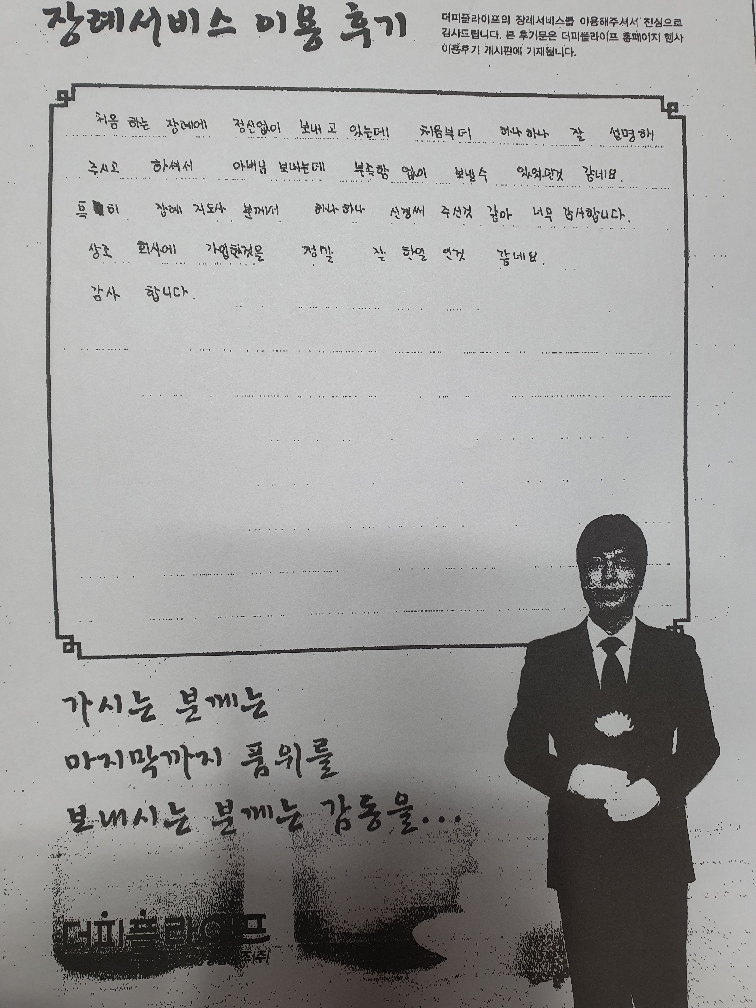 장례서비스 이용 후기
더피플라이프의 장례서비스를 이용해주셔서 진심으로
감사드립니다. 본 후기문은 더피플라이프 홈페이지 행사
이용후기 게시판에 기재됩니다.
처음 하는 장례에 정신없이 보내고 있는데 처음부터 하나하나 잘 설명해
주시고 하셔서 아버님 보내는데 부족함 없이 보낼수 있었던것 같네요.
특히 장례 지도사 분께서 하나하나 신경써 주신것 같아 너무 감사합니다.
상조 회사에 가입한것을 정말 잘 한일 인것 같네요.
감사 합니다.
가시는 분께는
마지막까지 품위를
보내시는 분께는 감동을...
더피플라이프